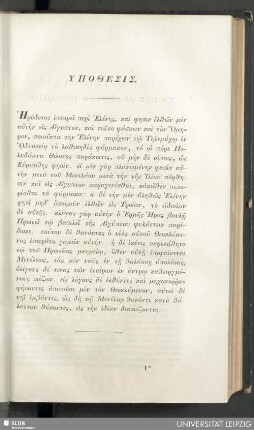 ΥΠΟΘΕΣΙΣ.
Ἡρόδοτος ἱστορεῖ περὶ Ἑλένης, καί φησιν ἐλθεῖν μὲν
αὐτὴν εἰς Αἴγυπτον, καὶ τοῦτο φάσκειν καὶ τὸν Ὅμη-
ρον, ποιοῦντα τὴν Ἑλένην παρέχειν τῷ Τηλεμάχῳ ἐν
Ὀδυσσείᾳ τὸ λαθικηδὲς φάρμακον, τό οἱ πόρε Πο-
λυδάμνα Θῶνος παράκοιτις, οὐ μὴν δὲ οὕτως, ὡς
Εὐριπίδης φησίν. οἱ μὲν γὰρ πλανωμένην φασὶν αὐτὴν
μετὰ τοῦ Μενελάου μετὰ τὴν τῆς Ἰλίου πόρθησιν
καὶ εἰς Αἴγυπτον παραγενέσθαι, κἀκεῖθεν πεπο-
ρίσθαι τὰ φάρμακα· ὁ δὲ τὴν μὲν ἀληθῶς Ἑλένην
φησὶ μηδ' ὁπωσοῦν ἐλθεῖν εἰς Τροίαν, τὸ εἴδωλον
δὲ αὐτῆς. κλέψας γὰρ αὐτὴν ὁ Ἑρμῆς Ἥρας βουλῇ
Πρωτεῖ τῷ βασιλεῖ τῆς Αἰγύπτου φυλάττειν παρέδωκε.
τούτου δὲ θανόντος ὁ υἱὸς αὐτοῦ Θεοκλύμε-
νος ἐπειρᾶτο γαμεῖν αὐτήν. ἡ δὲ ἱκέτις παρεκάθητο
τῷ τοῦ Πρωτέως μνήματι, ὅθεν αὐτῇ ἐπιφαίνεται
Μενέλεως, τὰς μὲν ναῦς ἐν τῇ θαλάσσῃ ἀπολέσας,
ὀλίγους δέ τινας τῶν ἑταίρων ἐν ἄντρῳ καθειργμέ-
νους σώζων. εἰς λόγους δὲ ἐλθόντες καὶ μηχανορρα-
φήσαντες ἀπατῶσι μὲν τὸν Θεοκλύμενον, αὐτοὶ δὲ
νηῒ ἐμβάντες, ὡς δὴ τῷ Μενέλεῳ θανόντι κατὰ θά-
λατταν θύσοντες, εἰς τὴν ἰδίαν διασώζονται.
1*
SLUB
UNIVERSITÄT LEIPZIG